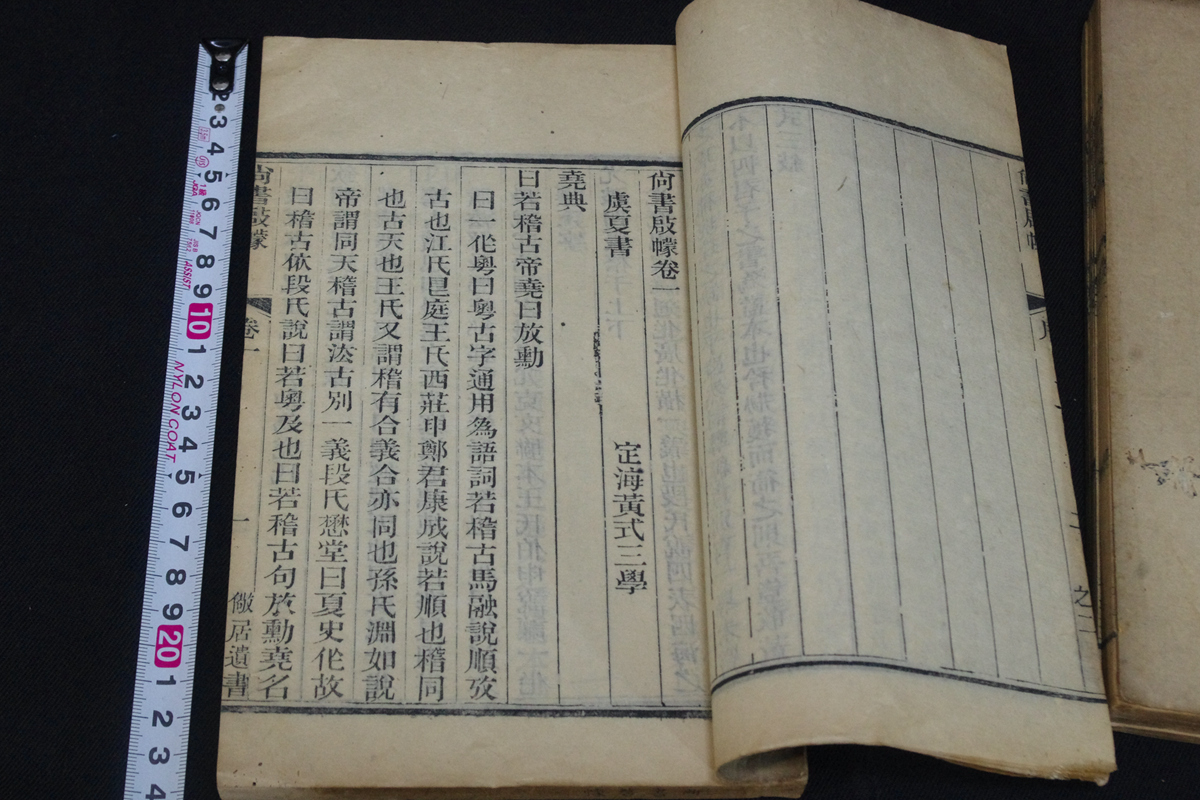 尙書啟幪卷一
虞夏書
定海黃式三學
堯典
曰若稽古帝堯曰放勳
曰一作粵曰粵古字通用爲語詞若稽古馬融說順攷
古也江氏艮庭王氏西莊申鄭君康成說若順也稽同
也古天也王氏又謂稽有合義合亦同也孫氏淵如說
帝謂同天稽古謂法古別一義段氏懋堂曰夏史作故
曰稽古依段氏說曰若粵及也曰若稽古句放勳堯名
尙書啟幪
卷一
一
儆居遺書
2 3 4 5 6 7 8 9 10 1 2 3 4 5 6 7 8 9 20 1 2 3 4
NYLON COAT
ASSIST